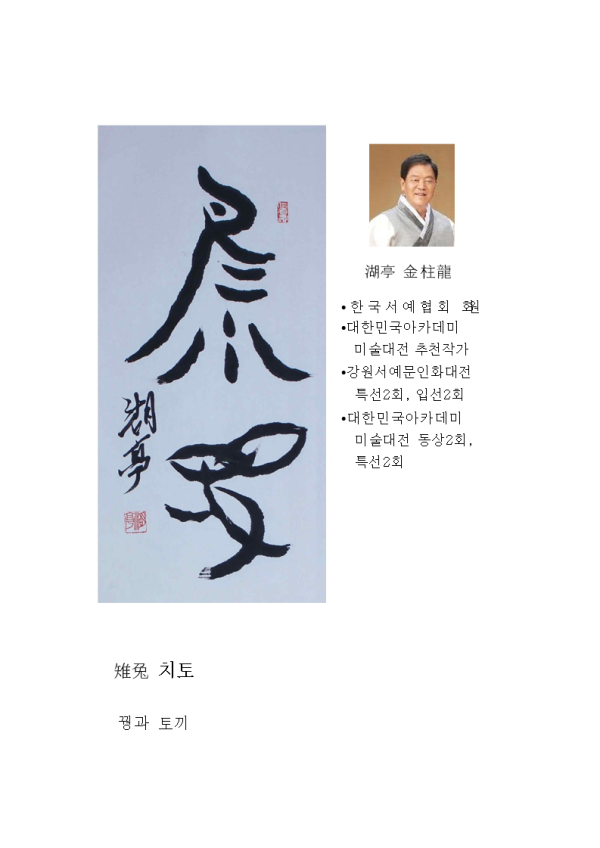 湖亭
湖亭 金柱龍
•한국서예협회 회원
•대한민국아카데미
미술대전 추천작가
•강원서예문인화대전
특선2회, 입선2회
•대한민국아카데미
미술대전 동상2회,
특선2회
雉兔 치토
꿩과 토끼